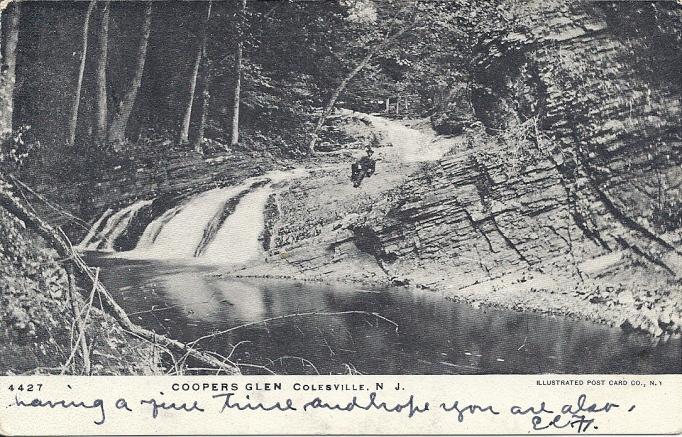 4427 COOPERS GLEN COLESVILLE. N J. ILLUSTRATED POST CARD CO., N.Y
having a fine time and hope you are also.